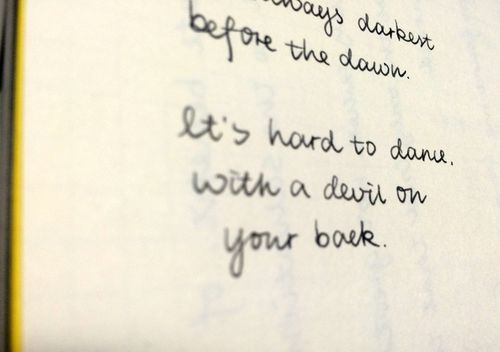 always darkest
before the dawn.
It's hard to dance.
with a devil on
your back.